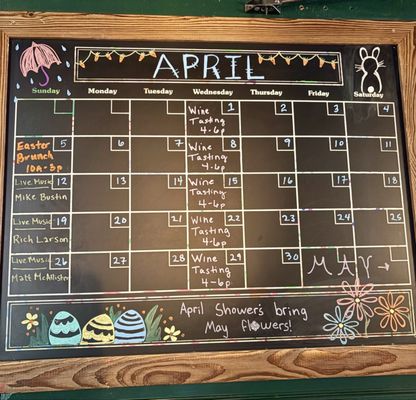 APRIL
Sunday Monday Tuesday Wednesday Thursday Friday Saturday
1 2 3 4
Wine
Tasting
4-6p
5 6 7 8 9 10 11
Easter
Brunch
10A-3p
Wine
Tasting
4-6p
12 13 14 15 16 17 18
Live Music
Mike Bustin
Wine
Tasting
4-6p
19 20 21 22 23 24 25
Live Music
Rich Larson
Wine
Tasting
4-6p
26 27 28 29 30
Live Music
Matt McAllister
Wine
Tasting
4-6p
MAY
April Shower's bring
May flowers!